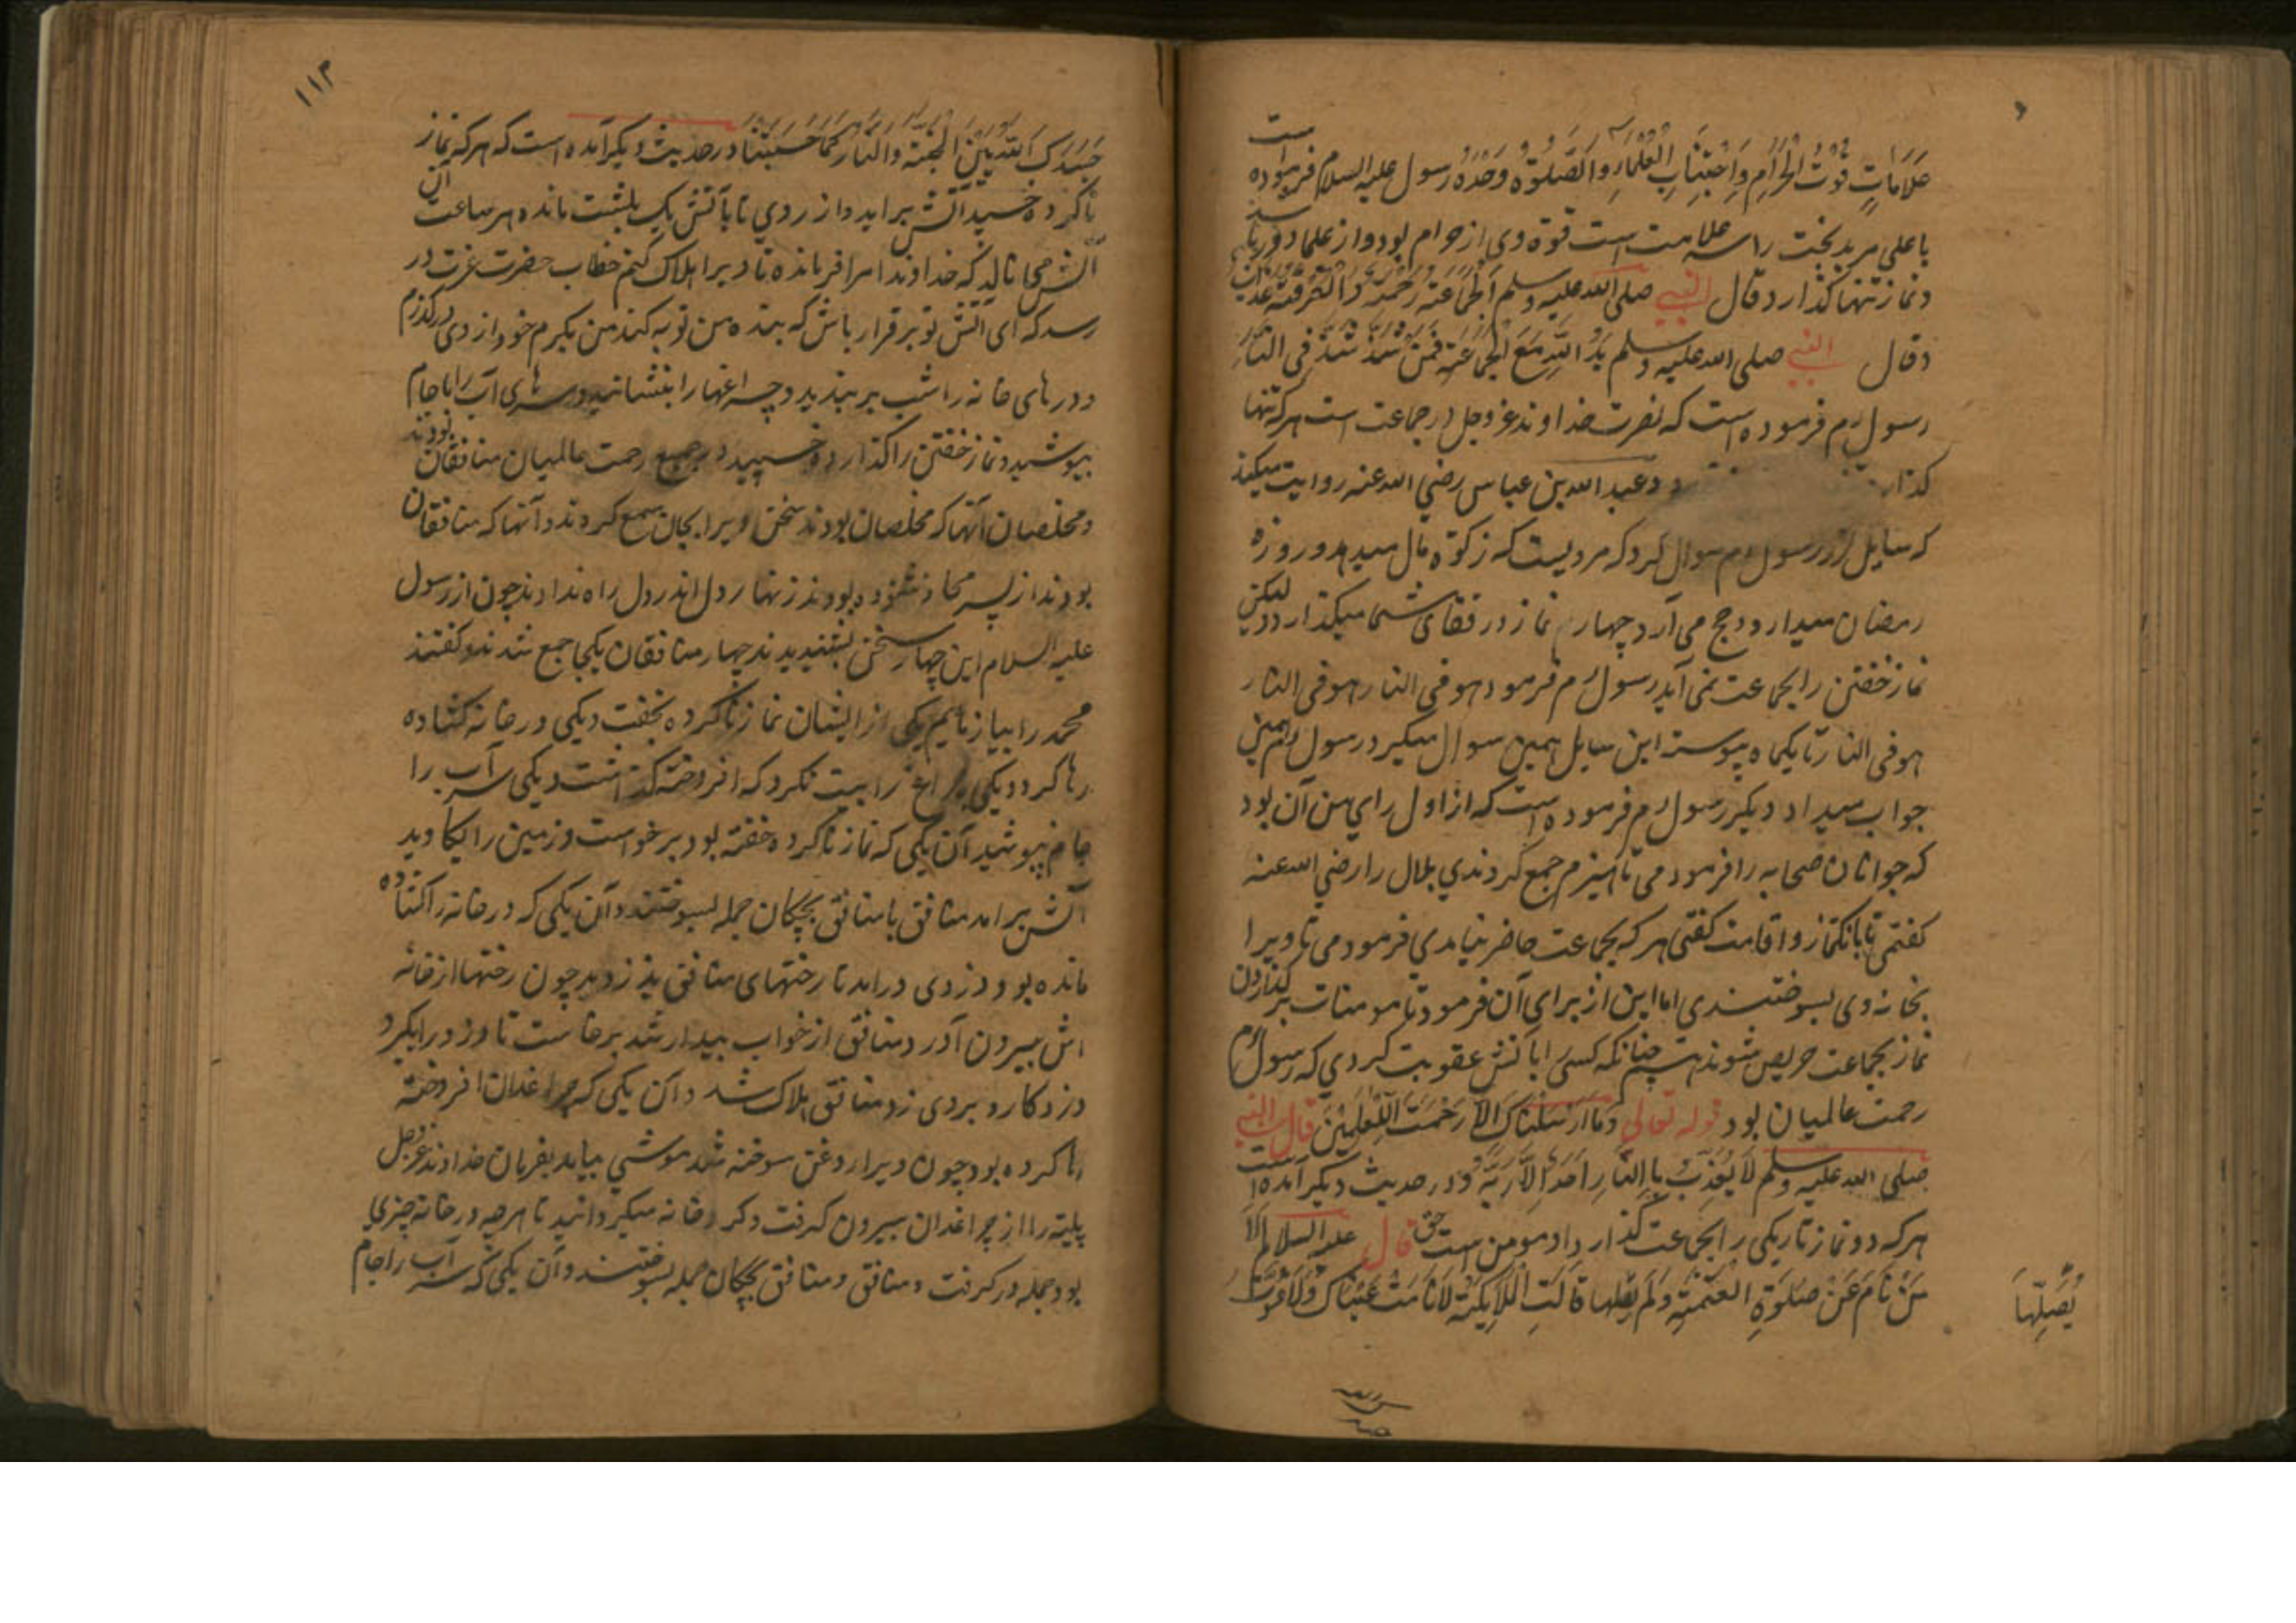 عَلَامَاتٍ قُوتُ الْحَرَامِ وَاجْتِنَابُ الْعُلَمَاءِ وَالصَّلٰوةُ وَحْدَهُ رسول علیه السلام فرموده است
یا علی مر بدبخت را سه علامت است قوة وی از حرام بود و از علما دور باشد
و نماز تنها گذارد قال النبي صلی الله علیه وسلم اَلْجَمَاعَةُ رَحْمَةٌ وَالْفُرْقَةُ عَذَابٌ
وقال النبي صلی الله علیه وسلم یَدُ اللّٰهِ مَعَ الْجَمَاعَةِ فَمَنْ شَذَّ شُذَّ فِی النَّارِ
رسول م فرموده است که نصرت خداوند عز وجل در جماعت است هر که تنها
گذارد و عبد الله بن عباس رضي الله عنه روایت میکند
که سایل از رسول م سوال کرد که مردیست که زکوة مال میدهد و روزه
رمضان میدارد و حج می آرد چهارم نماز در قفای شما میگذارد ولیکن
نماز خفتن را بجماعت نمی آید رسول م فرمود هو فی النار هو فی النار
هو فی النار تا یکماه پیوسته این سایل همین سوال میکرد رسول م همین
جواب میداد دیگر رسول م فرموده است که از اول رای من آن بود
که جوانان صحابه را فرمودمی تا هیزم جمع کردندي بلال را رضي الله عنه
گفتمی تا بانگنماز و اقامت گفتی هر که بجماعت حاضر نیامدي فرمودمی تا ویرا
بخانه وی بسوختندی اما این از برای آن فرمود تا مومنات بر گذاردن
نماز بجماعت حریص شوند نه چنانکه کسی را بآتش عقوبت کردي که رسول م
رحمت عالمیان بود قوله تعالی وَمَا اَرْسَلْنَاكَ اِلَّا رَحْمَتَ الِّلْعٰلَمِیْنَ قال النبي
صلی الله علیه وسلم لَا یُعَذِّبُ بِالنَّارِ اَحَدٌ اِلَّا رَبَّهُ و در حدیث دیگر آمده است
هر که دو نماز تاریکی را بجماعت گذارد او مومن است حق قال علیه السلام اَلَا
مَنْ نَامَ عَنْ صَلٰوةِ الْعَتَمَةِ وَلَمْ یُصَلِّهَا قَالَتِ الْمَلَایِکَةُ لَا نَامَتْ عَیْنَاكَ وَلَا
یُصَلِّهَا
۱۱۳
اللّٰهُ بَیْنَ الْجَنَّةِ وَالنَّارِ کَمَا حَسَبْتَنَا و در حدیث دیگر آمده است که هر که نماز
ناکرده خسپد آتش براید و از روي تا بآتش یک بلشت مانده هر ساعت آن
آتش می نالد که خداوندا مرا فرمانده تا ویرا هلاک کنم خطاب حضرت عزت در
رسد که ای آتش تو برقرار باش که بنده من توبه کند من بکرم خود از وی درگذرم
و درهای خانه را شب بر بندید و چراغها را بنشانید و سرهای آب را با جام
بپوشید و نماز خفتن را گذارده خسپید در جمیع رحمت عالمیان منافقان بودند
و مخلصان آنها که مخلصان بودند سخن ویرا بجان سمع کردند و آنها که منافقان
بودند از پس شنوده بودند زنهار دل اندر دل راه ندادند چون از رسول
علیه السلام این چهار سخن بشنیدند چهار منافقان یکجا جمع شدند و گفتند
محمد را بیازمایم یکی از ایشان نماز ناکرده بخفت و یکی در خانه کشاده
رها کرد و یکی چراغ را پست نکرد که افروخته گذاشت و یکی سر آب را
جام نپوشید آن یکی که نماز ناکرده خفته بود برخواست و زمین را بکاوید
آتش برآمد منافق با منافق بچگان جمله بسوختند و آن یکی که در خانه را کشاده
مانده بود دزدی درآمد تا رختهای منافق بدزدد چون رختها از خانه
اش بیرون آورد منافق از خواب بیدار شد برخاست تا دزد را بگیرد
دزد کارد بروی زد منافق هلاک شد و آن یکی که چراغدان افروخته
رها کرده بود چون ویرا روغن سوخته شد موشي بیامد بفرمان خداوند عز وجل
پلیته را از چراغدان بیرون گرفت و گرد خانه میگردانید تا هر چه در خانه چیزي
بود جمله در گرفت و منافق و منافق بچگان جمله بسوختند و آن یکی که سر آب را جام